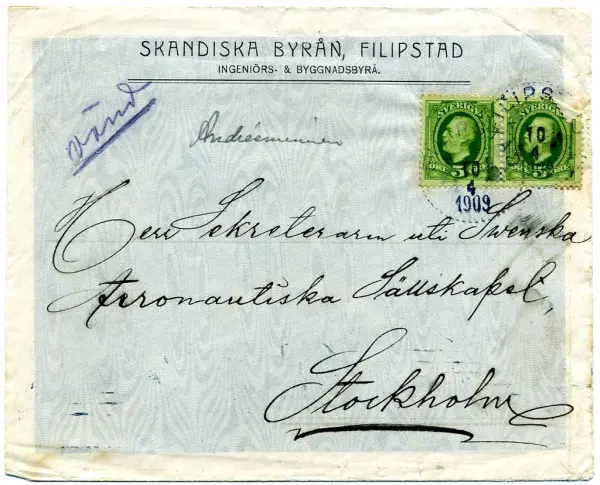 SKANDISKA BYRÅN, FILIPSTAD
INGENIÖRS- & BYGGNADSBYRÅ.
vänd
Andréeminnen
SVERIGE
SVERIGE
ÖRE 5
ÖRE 5
10
4
1909
10
4
Herr Sekreteraren uti Svenska
Aeronautiska Sällskapet,
Stockholm